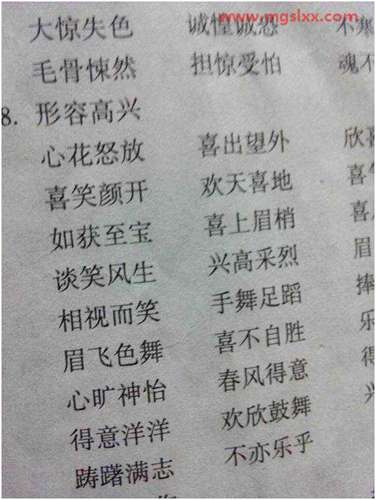 www.mgslxx.com
大惊失色 诚惶诚恐 不寒
毛骨悚然 担惊受怕 魂不
8. 形容高兴
心花怒放 喜出望外 欣喜
喜笑颜开 欢天喜地 喜
如获至宝 喜上眉梢 喜
谈笑风生 兴高采烈 眉
相视而笑 手舞足蹈 捧
眉飞色舞 喜不自胜 乐
心旷神怡 春风得意
得意洋洋 欢欣鼓舞
踌躇满志 不亦乐乎